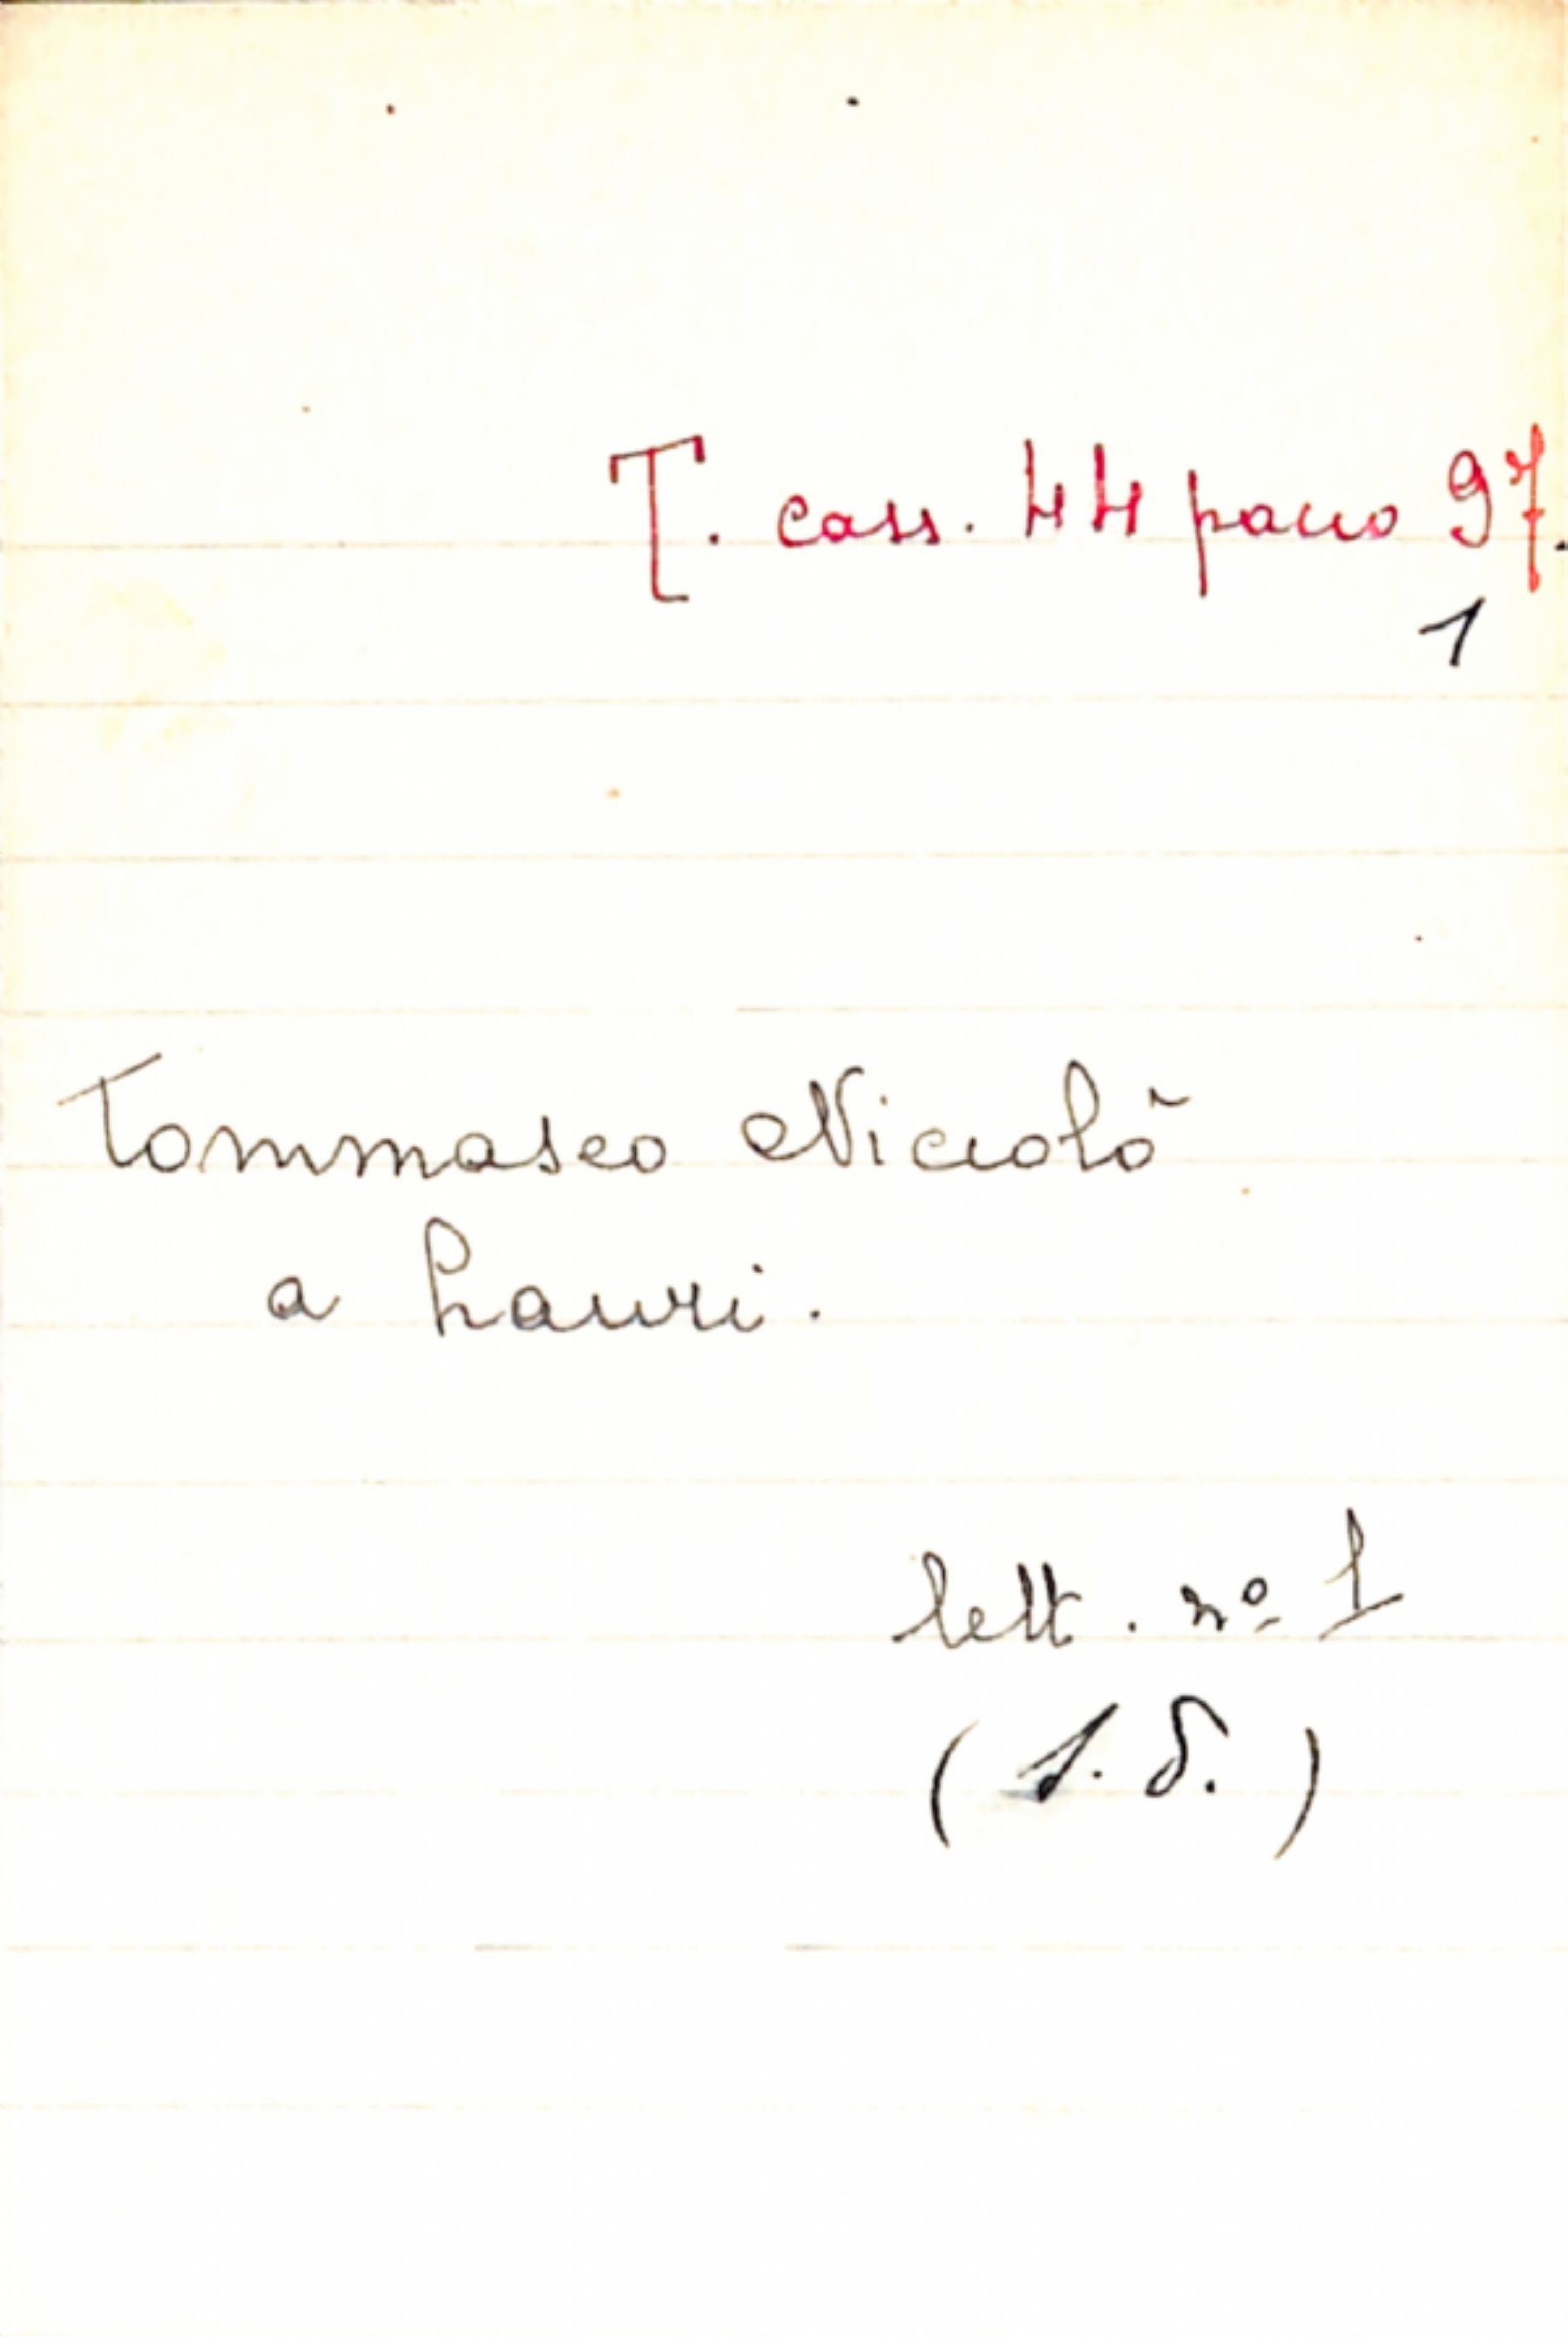 T. cass. 44 pacco 97.
1
Tommaseo Niccolò
a Lauri.
lett. nº 1
(s. d.)